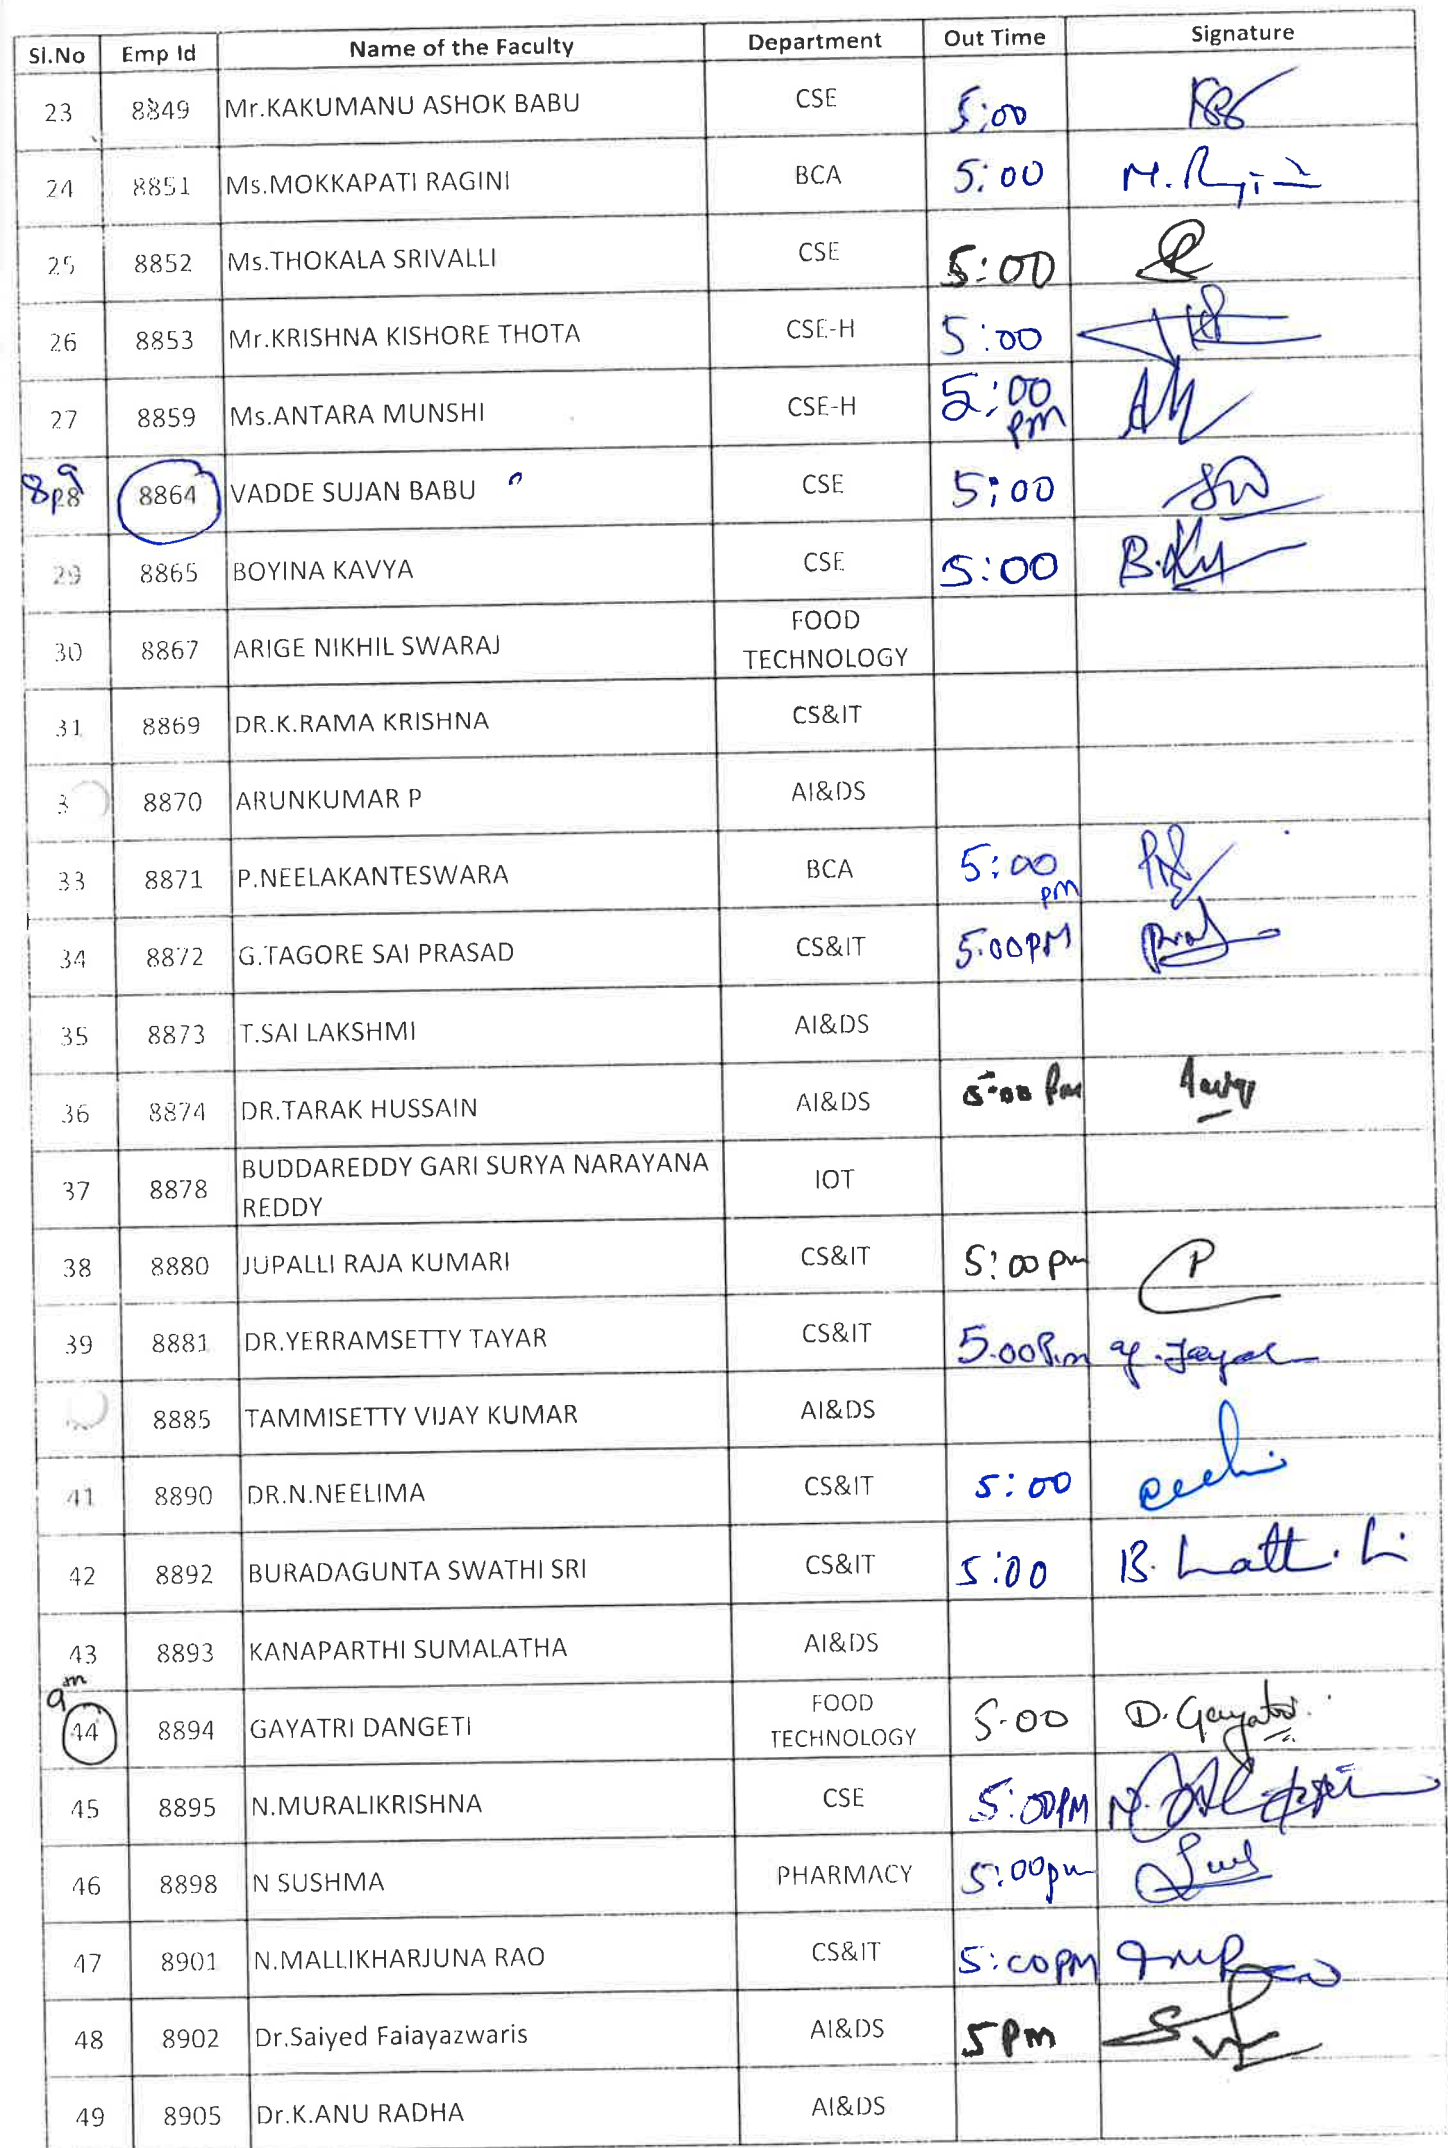 Sl.No Emp Id Name of the Faculty Department Out Time Signature
23 8849 Mr.KAKUMANU ASHOK BABU CSE 5:00
24 8851 Ms.MOKKAPATI RAGINI BCA 5:00
25 8852 Ms.THOKALA SRIVALLI CSE 5:00
26 8853 Mr.KRISHNA KISHORE THOTA CSE-H 5:00
27 8859 Ms.ANTARA MUNSHI CSE-H 5:00 pm
28 8864 VADDE SUJAN BABU CSE 5:00
29 8865 BOYINA KAVYA CSE 5:00
30 8867 ARIGE NIKHIL SWARAJ FOOD TECHNOLOGY
31 8869 DR.K.RAMA KRISHNA CS&IT
3 8870 ARUNKUMAR P AI&DS
33 8871 P.NEELAKANTESWARA BCA 5:00 pm
34 8872 G.TAGORE SAI PRASAD CS&IT 5.00PM
35 8873 T.SAI LAKSHMI AI&DS
36 8874 DR.TARAK HUSSAIN AI&DS 5:00 Pm
37 8878 BUDDAREDDY GARI SURYA NARAYANA REDDY IOT
38 8880 JUPALLI RAJA KUMARI CS&IT 5:00 pm
39 8881 DR.YERRAMSETTY TAYAR CS&IT 5.00P.m
8885 TAMMISETTY VIJAY KUMAR AI&DS
41 8890 DR.N.NEELIMA CS&IT 5:00
42 8892 BURADAGUNTA SWATHI SRI CS&IT 5:00
43 8893 KANAPARTHI SUMALATHA AI&DS
44 8894 GAYATRI DANGETI FOOD TECHNOLOGY 5.00 D. Gayatri
45 8895 N.MURALIKRISHNA CSE 5:00PM
46 8898 N SUSHMA PHARMACY 5:00pm
47 8901 N.MALLIKHARJUNA RAO CS&IT 5:00PM
48 8902 Dr.Saiyed Faiayazwaris AI&DS 5 Pm
49 8905 Dr.K.ANU RADHA AI&DS